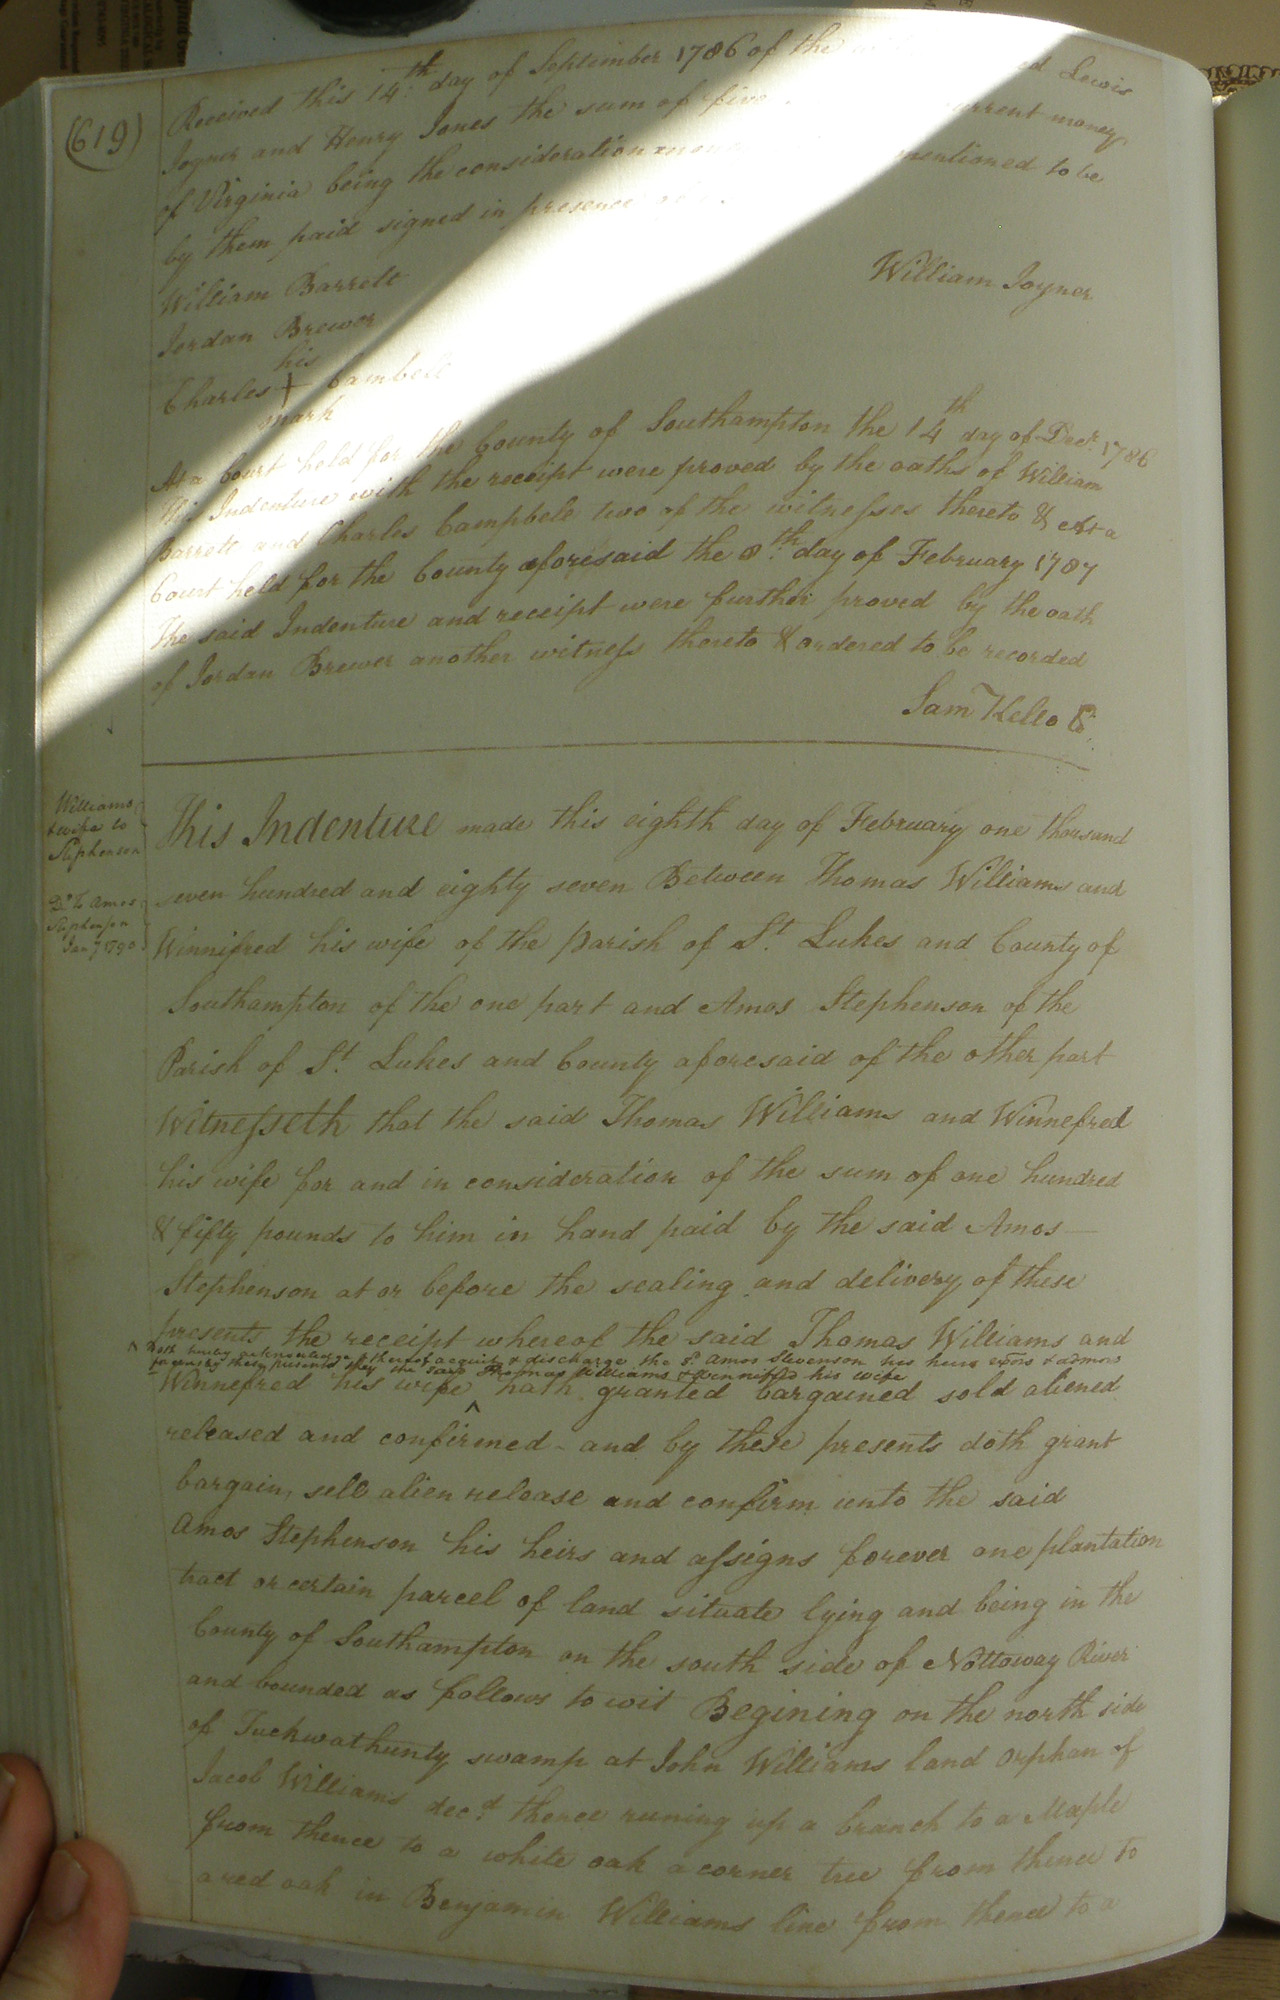 (619)
Received this 14th day of September 1786 of the ed Lewis
Joyner and Henry Jones the sum of five current money
of Virginia being the consideration money mentioned to be
by them paid signed in presence of
William Barrett
William Joyner
Jordan Brewer
his
Charles + Cambell
mark
At a Court held for the County of Southampton the 14th day of Decr. 1786
This Indenture with the receipt were proved by the oaths of William
Barrett and Charles Campbele two of the witnesses thereto & At a
Court held for the County aforesaid the 8th. day of February 1787
The said Indenture and receipt were further proved by the oath
of Jordan Brewer another witness thereto & ordered to be recorded
Sam Kello
Williams
& wife to
Stephenson
Dd. to Amos
Stephenson
Jan 7 1790
This Indenture made this eighth day of February one thousand
seven hundred and eighty seven Between Thomas Williams and
Winnifred his wife of the parish of St. Lukes and County of
Southampton of the one part and Amos Stephenson of the
Parish of St. Lukes and County aforesaid of the other part
Witnesseth that the said Thomas Williams and Winnefred
his wife for and in consideration of the sum of one hundred
& fifty pounds to him in hand paid by the said Amos
Stephenson at or before the sealing and delivery of these
presents the receipt whereof the said Thomas Williams and
doth hereby acknowledge & thereof acquit & discharge the sd. Amos Stevenson his heirs exors & admors
by these presents they the said Thomas Williams & Winnefred his wife
Winnefred his wife ^ hath granted bargained sold aliened
released and confirmed - and by these presents doth grant
bargain, sell alien release and confirm unto the said
Amos Stephenson his heirs and assigns forever one plantation
tract or certain parcel of land situate lying and being in the
County of Southampton on the south side of Nottoway River
and bounded as follows to wit Begining on the north side
of Tuckwathunty swamp at John Williams land orphan of
Jacob Williams decd. thence runing up a branch to a Maple
from thence to a white oak a corner tree from thence to
a red oak in Benjamin Williams line from thence to a